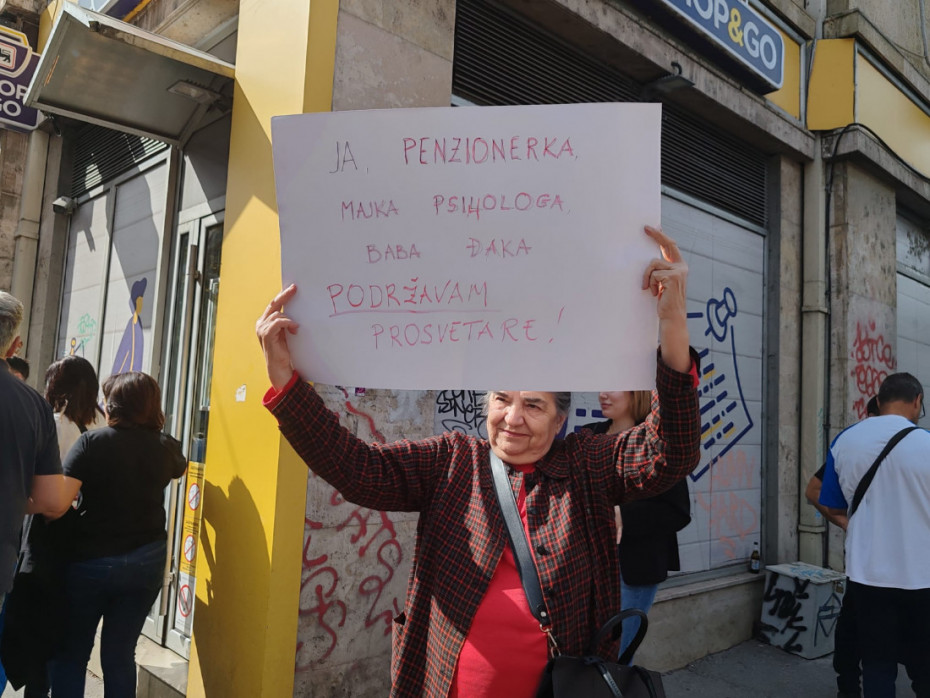 JA, PENZIONERKA,
MAJKA PSIЦOLOGA,
BABA ĐAKA
PODRŽAVAM
PROSVETARE!
OP&GO
OP
&GO